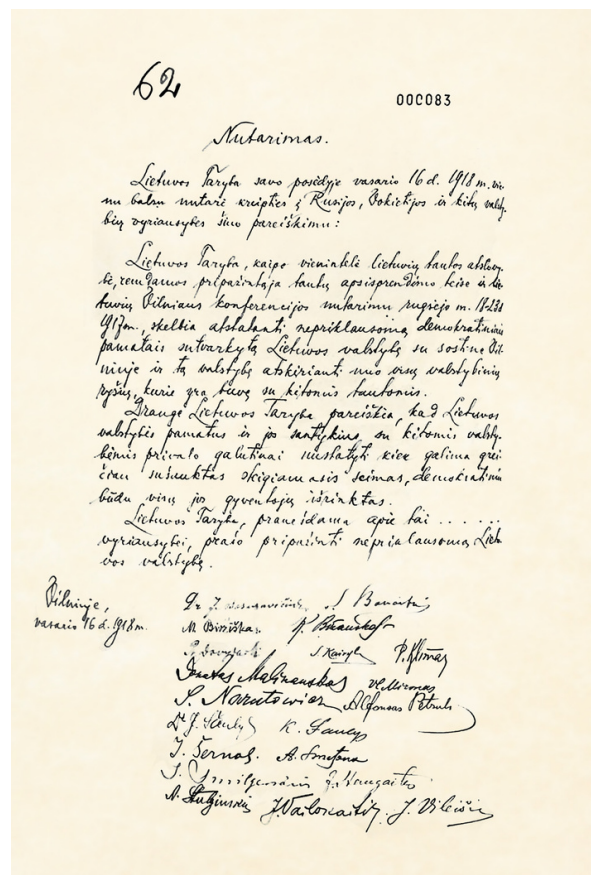 62
000083
Nutarimas.
Lietuvos Taryba savo posėdyje vasario 16 d. 1918 m. vie-
nu balsu nutarė kreipties į Rusijos, Vokietijos ir kitų valsty-
bių vyriausybes šiuo pareiškimu:
Lietuvos Taryba, kaipo vienintelė lietuvių tautos atstovy-
bė, remdamos pripažintąja tautų apsisprendimo teise ir lie-
tuvių Vilniaus konferencijos nutarimu rugsėjo m. 18-23 d.
1917 m., skelbia atstatanti nepriklausomą demokratiniais
pamatais sutvarkytą Lietuvos valstybę su sostine Vil-
niuje ir tą valstybę atskirianti nuo visų valstybinių
ryšių, kurie yra buvę su kitomis tautomis.
Drauge Lietuvos Taryba pareiškia, kad Lietuvos
valstybės pamatus ir jos santykius su kitomis valsty-
bėmis privalo galutinai nustatyti kiek galima grei-
čiau sušauktas steigiamasis seimas, demokratiniu
būdu visų jos gyventojų išrinktas.
Lietuvos Taryba, pranešdama apie tai . . . . . .
vyriausybei, prašo pripažinti nepriklausomą Lietu-
vos valstybę.
Vilniuje,
vasario 16 d. 1918 m.
Dr. J. Basanavičius S. Banaitis
M. Biržiška K. Bizauskas
P. Dovydaitis S. Kairys P. Klimas
Donatas Malinauskas Vl. Mironas
S. Narutowicz Alfonsas Petrulis
Dr J. Šaulys K. Šaulys
J. Šernas A. Smetona
J. Smilgevičius J. Staugaitis
A. Stulginskis J. Vailokaitis J. Vileišis